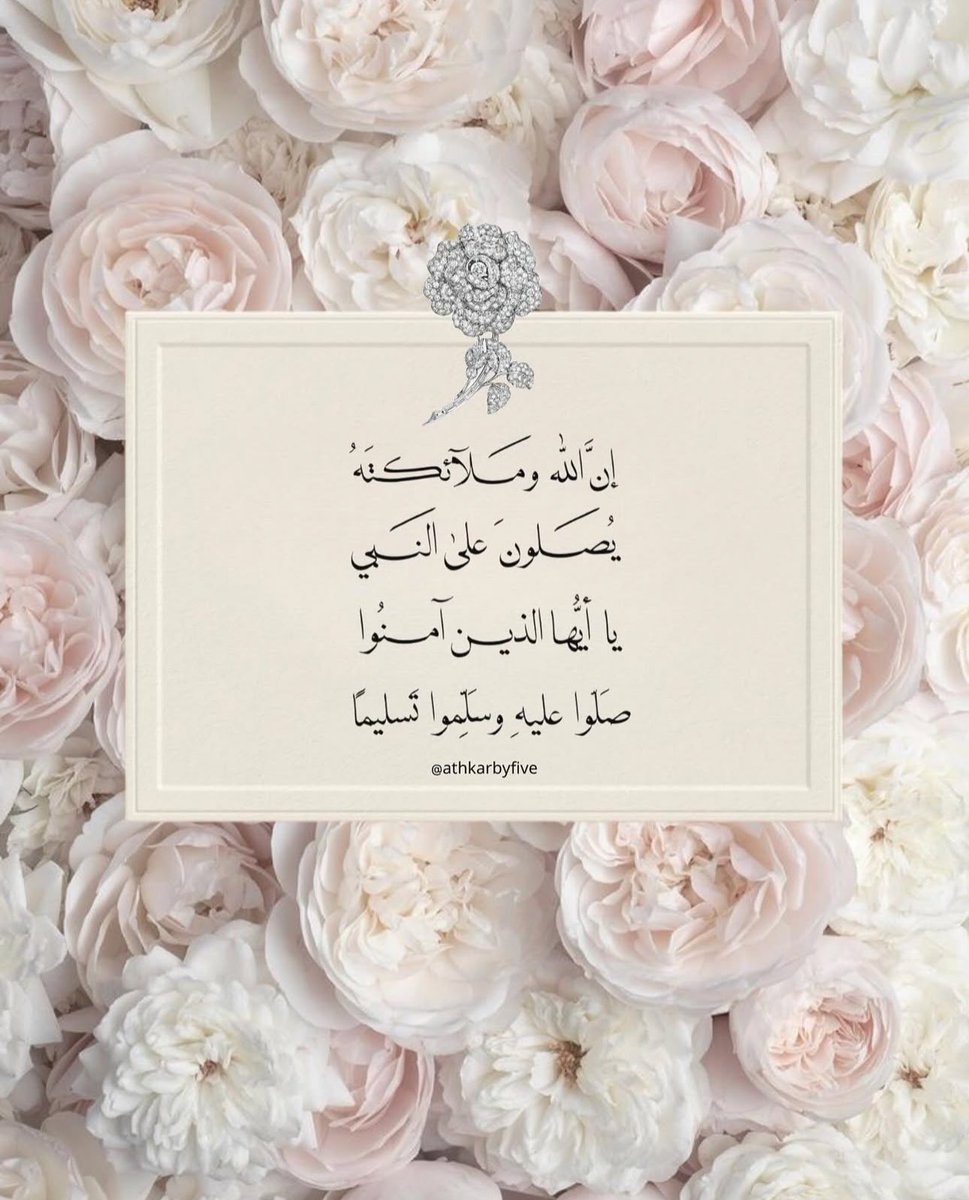 إنَّ الله ومَلآئكتَهُ
يُصَلونَ عَلىٰ النَبي
يا أيُّها الذين آمنُوا
صَلّوا عليهِ وسَلِّموا تَسليمًا
@athkarbyfive